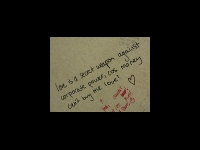 love is a secret weapon against
corporate power, cos money
can't buy me love!